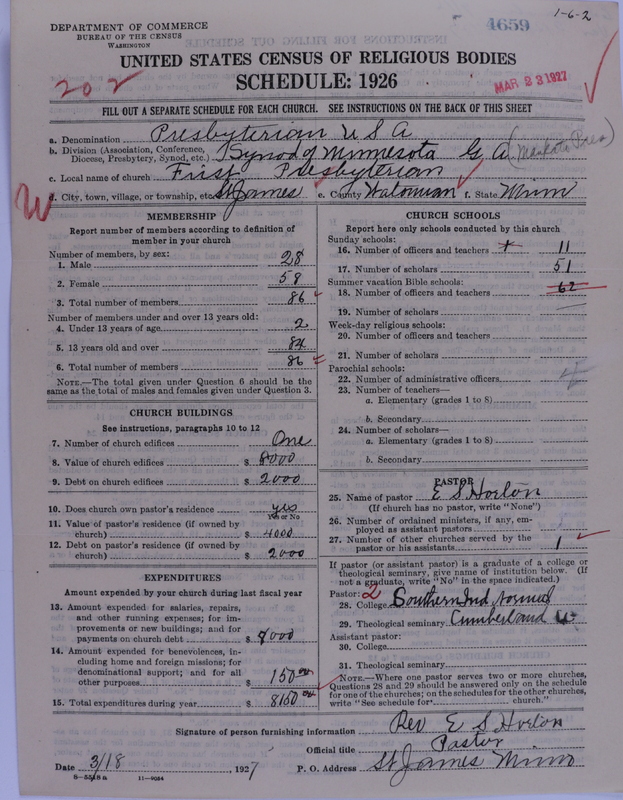 DEPARTMENT OF COMMERCE
BUREAU OF THE CENSUS
WASHINGTON
4659
1-6-2
UNITED STATES CENSUS OF RELIGIOUS BODIES
SCHEDULE: 1926
202
MAR 23 1927
FILL OUT A SEPARATE SCHEDULE FOR EACH CHURCH. SEE INSTRUCTIONS ON THE BACK OF THIS SHEET
a. Denomination Presbyterian U S A
b. Division (Association, Conference, Diocese, Presbytery, Synod, etc.) Synod of Minnesota G A (Mankato Pres)
c. Local name of church First Presbyterian
d. City, town, village, or township, etc. St James e. County Watonwan f. State Minn
MEMBERSHIP
Report number of members according to definition of
member in your church
Number of members, by sex:
1. Male 28
2. Female 58
3. Total number of members 86
Number of members under and over 13 years old:
4. Under 13 years of age 2
5. 13 years old and over 84
6. Total number of members 86
NOTE.—The total given under Question 6 should be
same as the total of males and females given under Question 3.
CHURCH BUILDINGS
See instructions, paragraphs 10 to 12
7. Number of church edifices One
8. Value of church edifices $ 8000
9. Debt on church edifices $ 2000
10. Does church own pastor's residence yes
Yes or No
11. Value of pastor's residence (if owned by
church) $ 4000
12. Debt on pastor's residence (if owned by
church) $ 2000
EXPENDITURES
Amount expended by your church during last fiscal year
13. Amount expended for salaries, repairs,
and other running expenses; for im-
provements or new buildings; and for
payments on church debt $ 8000
14. Amount expended for benevolences, in-
cluding home and foreign missions; for
denominational support; and for all
other purposes $ 150 00
15. Total expenditures during year $ 8150 00
CHURCH SCHOOLS
Report here only schools conducted by this church
Sunday schools:
16. Number of officers and teachers 11
17. Number of scholars 51
Summer vacation Bible schools:
18. Number of officers and teachers 62
19. Number of scholars
Week-day religious schools:
20. Number of officers and teachers
21. Number of scholars
Parochial schools:
22. Number of administrative officers
23. Number of teachers—
a. Elementary (grades 1 to 8)
b. Secondary
24. Number of scholars—
a. Elementary (grades 1 to 8)
b. Secondary
PASTOR
25. Name of pastor E S Horton
(If church has no pastor, write "None")
26. Number of ordained ministers, if any, em-
ployed as assistant pastors
27. Number of other churches served by the
pastor or his assistants 1
If pastor (or assistant pastor) is a graduate of a college or
theological seminary, give name of institution below. (If
not a graduate, write "No" in the space indicated.)
Pastor: 2
28. College Southern Ind Normal
29. Theological seminary Cumberland
Assistant pastor:
30. College
31. Theological seminary
NOTE.—Where one pastor serves two or more churches,
Questions 28 and 29 should be answered only on the schedule
for one of the churches; on the schedules for the other churches,
write "See schedule for church."
Signature of person furnishing information Rev E S Horton
Official title Pastor
Date 3/18, 1927 P. O. Address St James Minn
8-5518a 11-9054